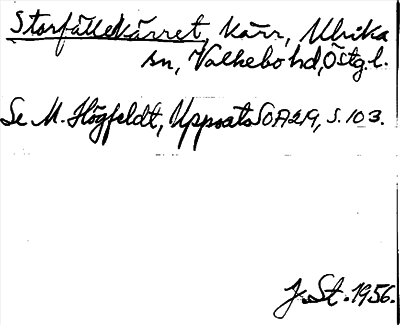 Storfällekärret, kärr, Ulrika
sn, Valkebo hd, Östg.l.
Se M. Högfeldt, Uppsats SOÄ 219, s. 103.
J. St. 1956.